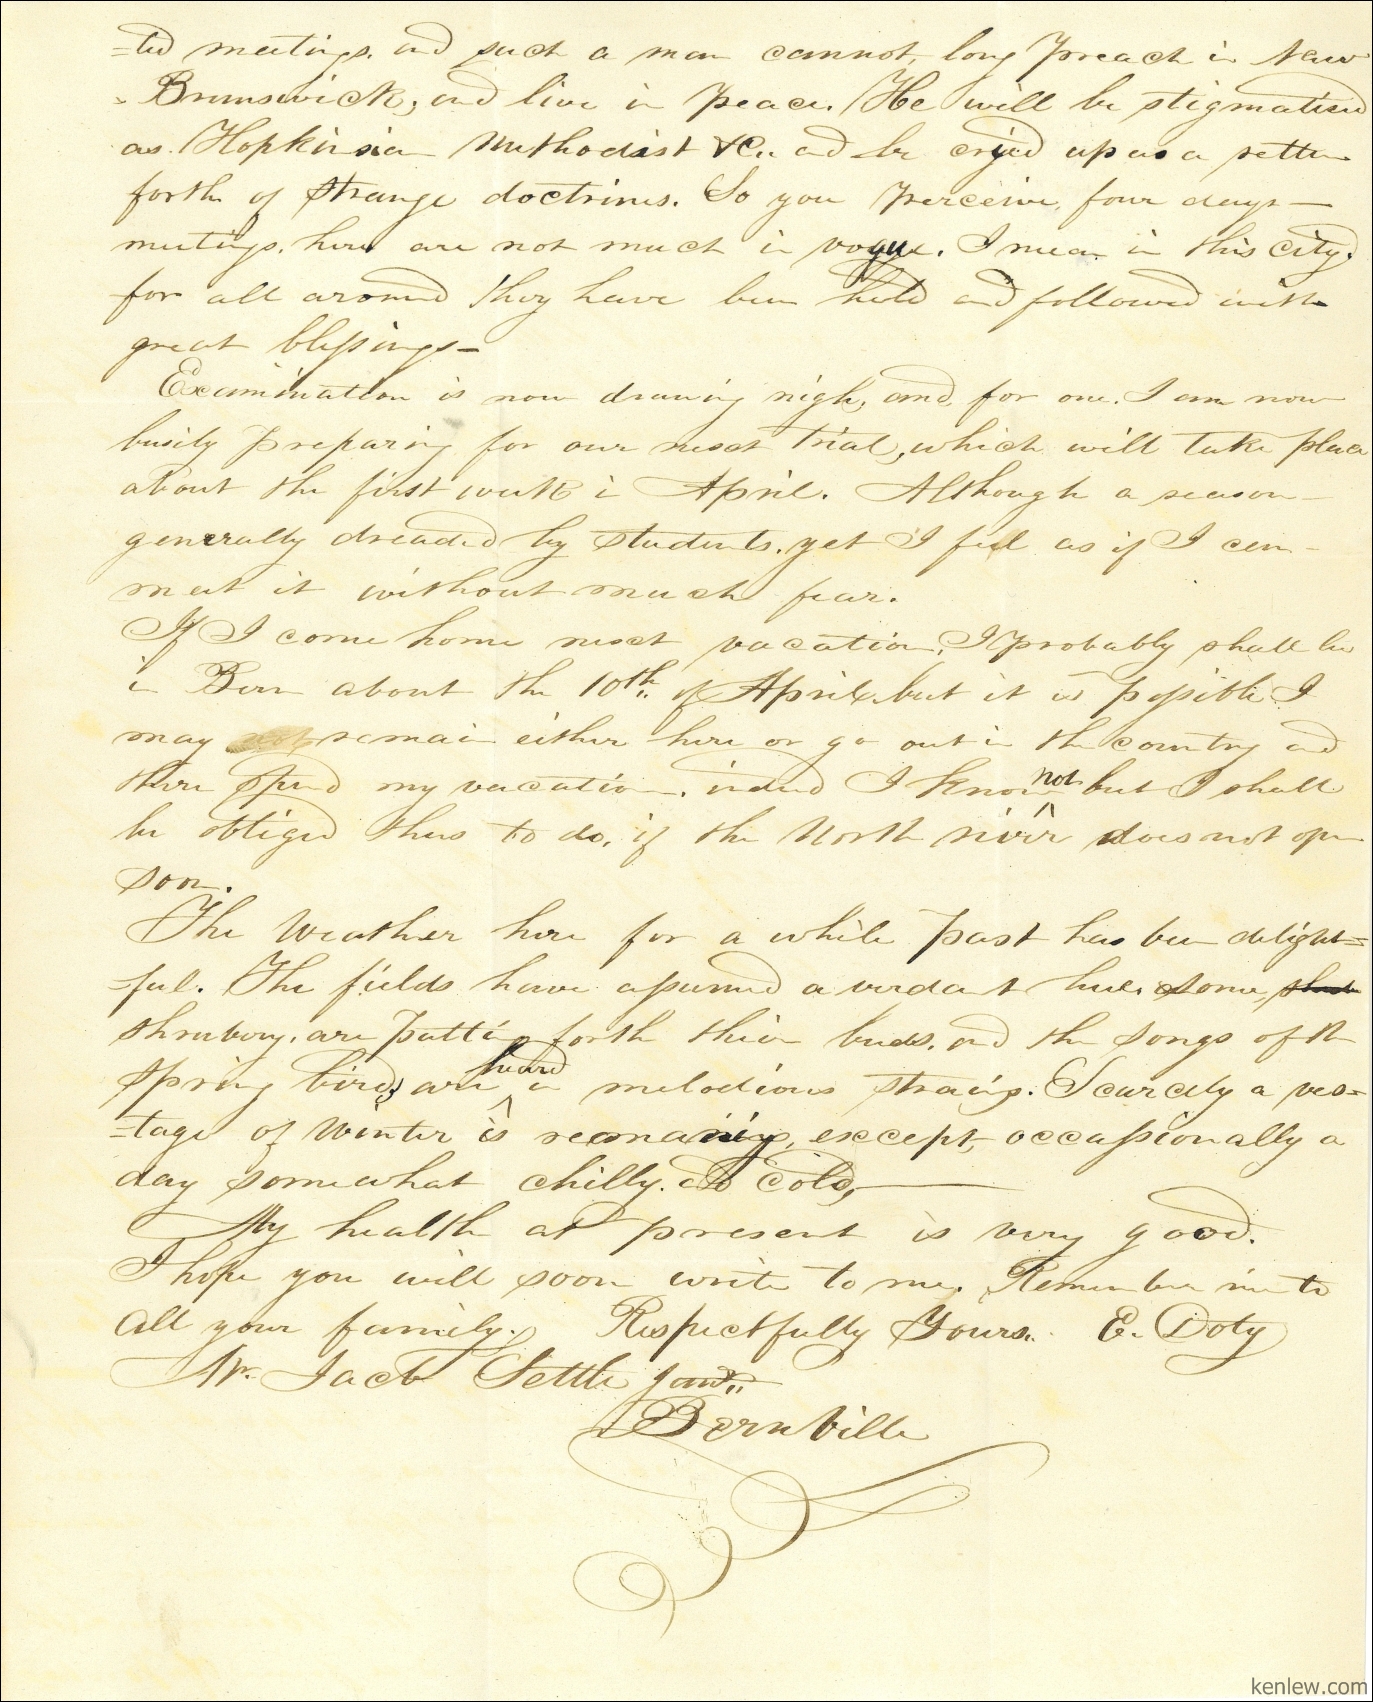 =ted meetings. and such a man cannot, long preach in New
- Brunswick, and live in peace. He will be stigmatised
as Hopkinsian Methodist &c. and be cryed up as a setter
forth of strange doctrines. So you perceive, four days—
meetings. here are not much in vogue. I mean in this city.
for all around they have been held and followed with
great blessings—
Examination is now drawing nigh, and, for one. I am now
busily preparing for our next trial, which will take place
about the first week in April. Although a season—
generally dreaded by students. yet I feel as if I can—
meet it without much fear.
If I come home next vacation, I probably shall be
in Bern about the 10th. of April. but it is possible I
may remain either here or go out in the country and
there spend my vacation. indeed I know not but I shall
be obliged thus to do, if the North river does not open
soon.
The weather here for a while past has been delight=
=ful. The fields have assumed a verdant hue. some
shrubery. are putting forth their buds. and the songs of the
spring birds, are heard in melodious strains. Scarcely a ves=
=tage of winter is remaining, except, occassionally a
day somewhat chilly. and cold,—
My health at present is very good.
I hope you will soon write to me. Remember me to
all your family. Respectfully Yours. E. Doty
Mr. Jacob Settle
Bernville
kenlew.com